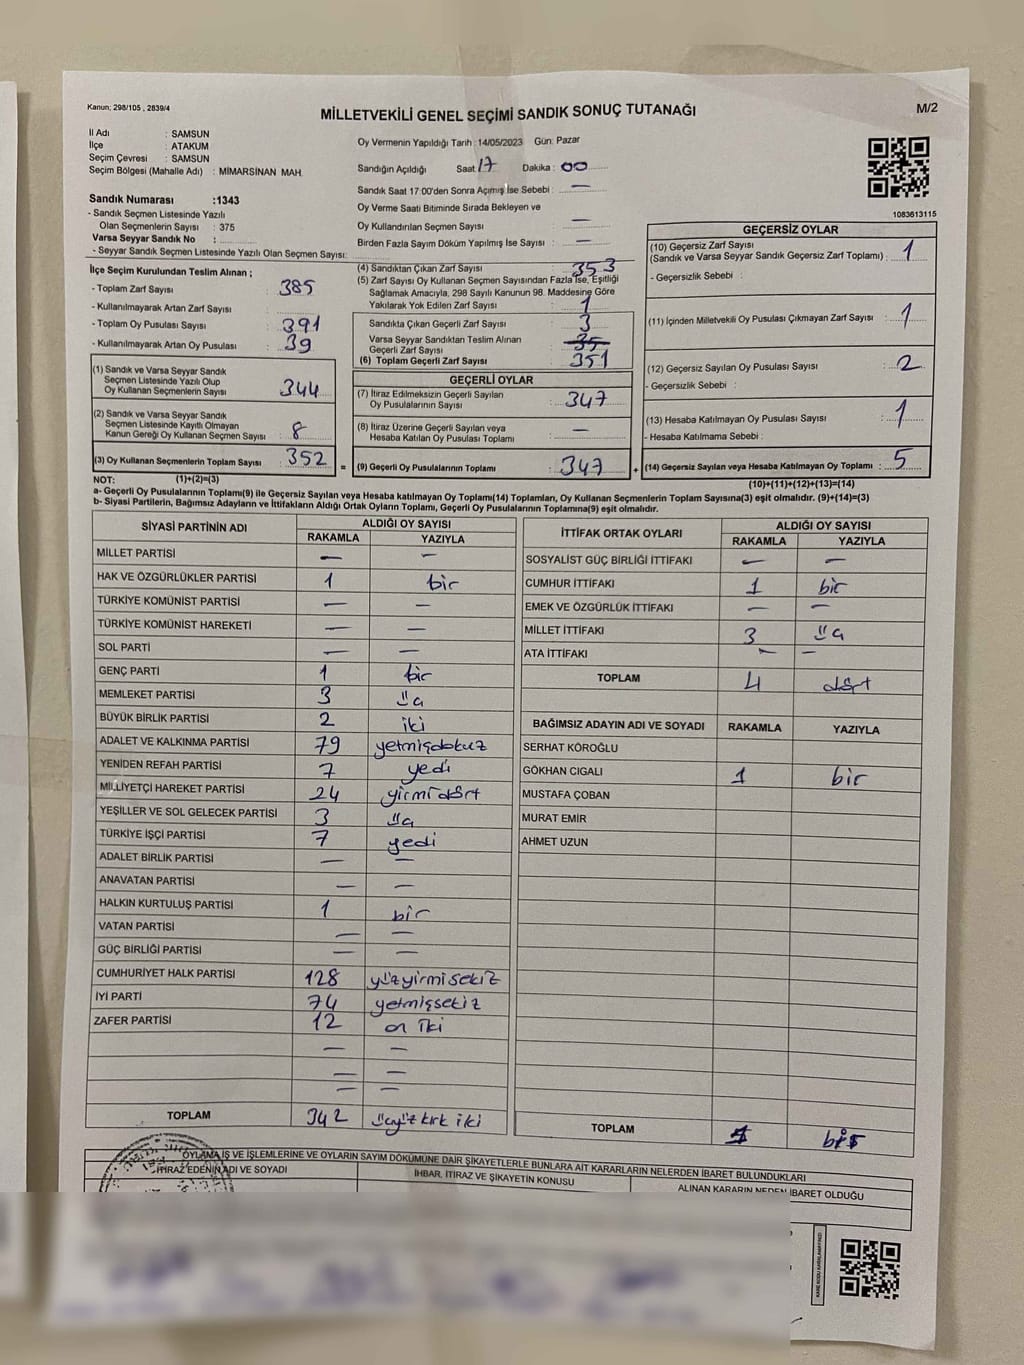 Kanun; 298/105 , 2839/4
MİLLETVEKİLİ GENEL SEÇİMİ SANDIK SONUÇ TUTANAĞI
M/2
İl Adı : SAMSUN
İlçe : ATAKUM
Seçim Çevresi : SAMSUN
Seçim Bölgesi (Mahalle Adı) : MİMARSİNAN MAH.
Sandık Numarası :1343
- Sandık Seçmen Listesinde Yazılı
Olan Seçmenlerin Sayısı : 375
Varsa Seyyar Sandık No :
- Seyyar Sandık Seçmen Listesinde Yazılı Olan Seçmen Sayısı:
Oy Vermenin Yapıldığı Tarih :14/05/2023 Gün: Pazar
Sandığın Açıldığı Saat 17 Dakika : 00
Sandık Saat 17:00'den Sonra Açılmış İse Sebebi : —
Oy Verme Saati Bitiminde Sırada Bekleyen ve
Oy Kullandırılan Seçmen Sayısı : —
Birden Fazla Sayım Döküm Yapılmış İse Sayısı : —
1083613115
İlçe Seçim Kurulundan Teslim Alınan ;
- Toplam Zarf Sayısı : 385
- Kullanılmayarak Artan Zarf Sayısı :
- Toplam Oy Pusulası Sayısı : 391
- Kullanılmayarak Artan Oy Pusulası : 39
(1) Sandık ve Varsa Seyyar Sandık
Seçmen Listesinde Yazılı Olup
Oy Kullanan Seçmenlerin Sayısı : 344
(2) Sandık ve Varsa Seyyar Sandık
Seçmen Listesinde Kayıtlı Olmayan
Kanun Gereği Oy Kullanan Seçmen Sayısı : 8
(3) Oy Kullanan Seçmenlerin Toplam Sayısı : 352
(1)+(2)=(3)
(4) Sandıktan Çıkan Zarf Sayısı : 353
(5) Zarf Sayısı Oy Kullanan Seçmen Sayısından Fazla İse, Eşitliği
Sağlamak Amacıyla, 298 Sayılı Kanunun 98. Maddesine Göre
Yakılarak Yok Edilen Zarf Sayısı : 1
Sandıkta Çıkan Geçerli Zarf Sayısı : 3
Varsa Seyyar Sandıktan Teslim Alınan
Geçerli Zarf Sayısı : 35
(6) Toplam Geçerli Zarf Sayısı : 351
GEÇERLİ OYLAR
(7) İtiraz Edilmeksizin Geçerli Sayılan
Oy Pusulalarının Sayısı : 347
(8) İtiraz Üzerine Geçerli Sayılan veya
Hesaba Katılan Oy Pusulası Toplamı : —
= (9) Geçerli Oy Pusulalarının Toplamı : 347
GEÇERSİZ OYLAR
(10) Geçersiz Zarf Sayısı
(Sandık ve Varsa Seyyar Sandık Geçersiz Zarf Toplamı) : 1
- Geçersizlik Sebebi :
(11) İçinden Milletvekili Oy Pusulası Çıkmayan Zarf Sayısı : 1
(12) Geçersiz Sayılan Oy Pusulası Sayısı : 2
- Geçersizlik Sebebi :
(13) Hesaba Katılmayan Oy Pusulası Sayısı : 1
- Hesaba Katılmama Sebebi :
+ (14) Geçersiz Sayılan veya Hesaba Katılmayan Oy Toplamı : 5
(10)+(11)+(12)+(13)=(14)
NOT:
a- Geçerli Oy Pusulalarının Toplamı(9) ile Geçersiz Sayılan veya Hesaba katılmayan Oy Toplamı(14) Toplamları, Oy Kullanan Seçmenlerin Toplam Sayısına(3) eşit olmalıdır. (9)+(14)=(3)
b- Siyasi Partilerin, Bağımsız Adayların ve İttifakların Aldığı Ortak Oyların Toplamı, Geçerli Oy Pusulalarının Toplamına(9) eşit olmalıdır.
SİYASİ PARTİNİN ADI ALDIĞI OY SAYISI
RAKAMLA YAZIYLA
MİLLET PARTİSİ — —
HAK VE ÖZGÜRLÜKLER PARTİSİ 1 bir
TÜRKİYE KOMÜNİST PARTİSİ — —
TÜRKİYE KOMÜNİST HAREKETİ — —
SOL PARTİ — —
GENÇ PARTİ 1 bir
MEMLEKET PARTİSİ 3 üç
BÜYÜK BİRLİK PARTİSİ 2 iki
ADALET VE KALKINMA PARTİSİ 79 yetmişdokuz
YENİDEN REFAH PARTİSİ 7 yedi
MİLLİYETÇİ HAREKET PARTİSİ 24 yirmi dört
YEŞİLLER VE SOL GELECEK PARTİSİ 3 üç
TÜRKİYE İŞÇİ PARTİSİ 7 yedi
ADALET BİRLİK PARTİSİ — —
ANAVATAN PARTİSİ — —
HALKIN KURTULUŞ PARTİSİ 1 bir
VATAN PARTİSİ — —
GÜÇ BİRLİĞİ PARTİSİ — —
CUMHURİYET HALK PARTİSİ 128 yüzyirmi sekiz
İYİ PARTİ 74 yetmişsekiz
ZAFER PARTİSİ 12 on iki
— —
— —
— —
TOPLAM 342 üçyüz kırk iki
İTTİFAK ORTAK OYLARI ALDIĞI OY SAYISI
RAKAMLA YAZIYLA
SOSYALİST GÜÇ BİRLİĞİ İTTİFAKI — —
CUMHUR İTTİFAKI 1 bir
EMEK VE ÖZGÜRLÜK İTTİFAKI — —
MİLLET İTTİFAKI 3 üç
ATA İTTİFAKI — —
TOPLAM 4 dört
BAĞIMSIZ ADAYIN ADI VE SOYADI RAKAMLA YAZIYLA
SERHAT KÖROĞLU
GÖKHAN CIGALI 1 bir
MUSTAFA ÇOBAN
MURAT EMİR
AHMET UZUN
TOPLAM 1
OYLAMA İŞ VE İŞLEMLERİNE VE OYLARIN SAYIM DÖKÜMÜNE DAİR ŞİKAYETLERLE BUNLARA AİT KARARLARIN NELERDEN İBARET BULUNDUKLARI
İTİRAZ EDENİN ADI VE SOYADI İHBAR, İTİRAZ VE ŞİKAYETİN KONUSU ALINAN KARARIN NEDEN İBARET OLDUĞU